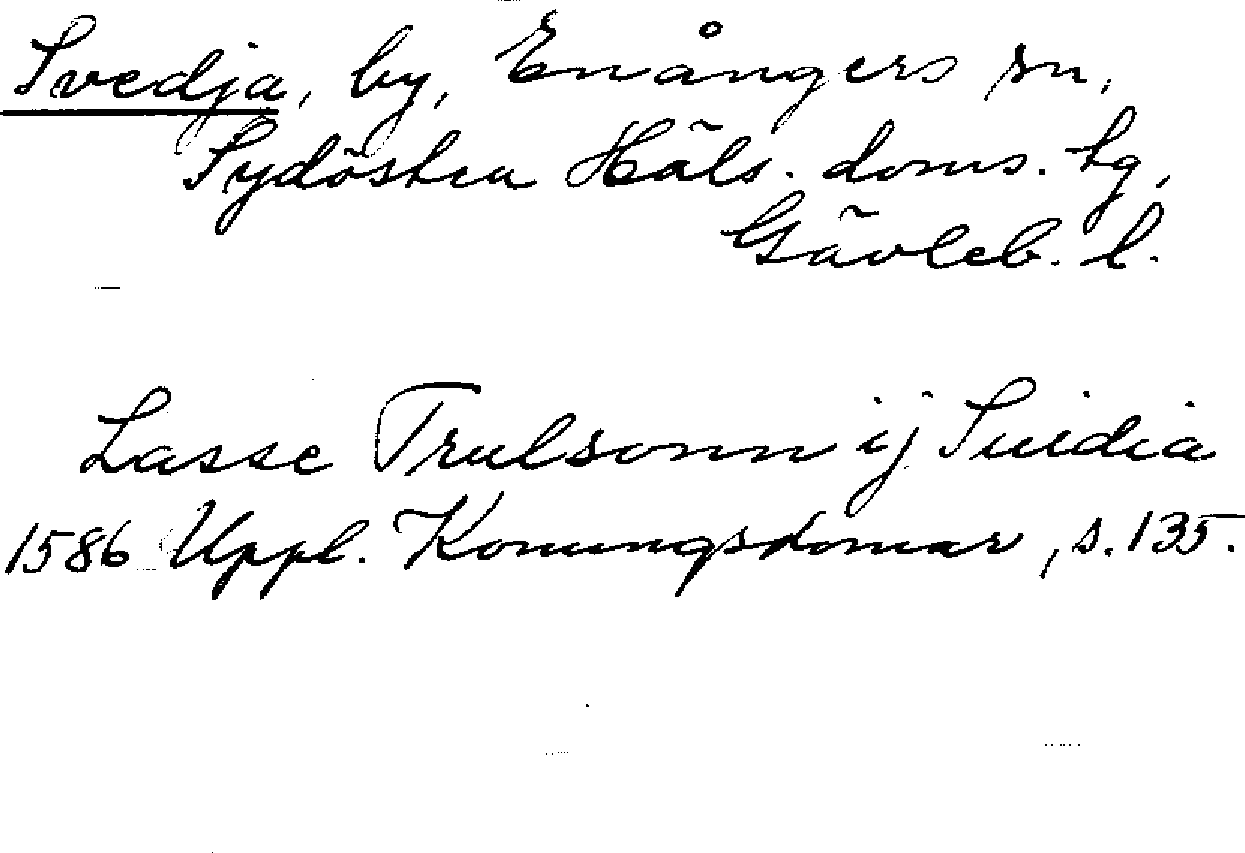 Svedja, by, Enångers sn,
Sydöstra Häls. doms. tg,
Gävleb. l.
Lasse Trulsonn ij Suidia
1586 Uppl. Konungsdomar, s. 135.